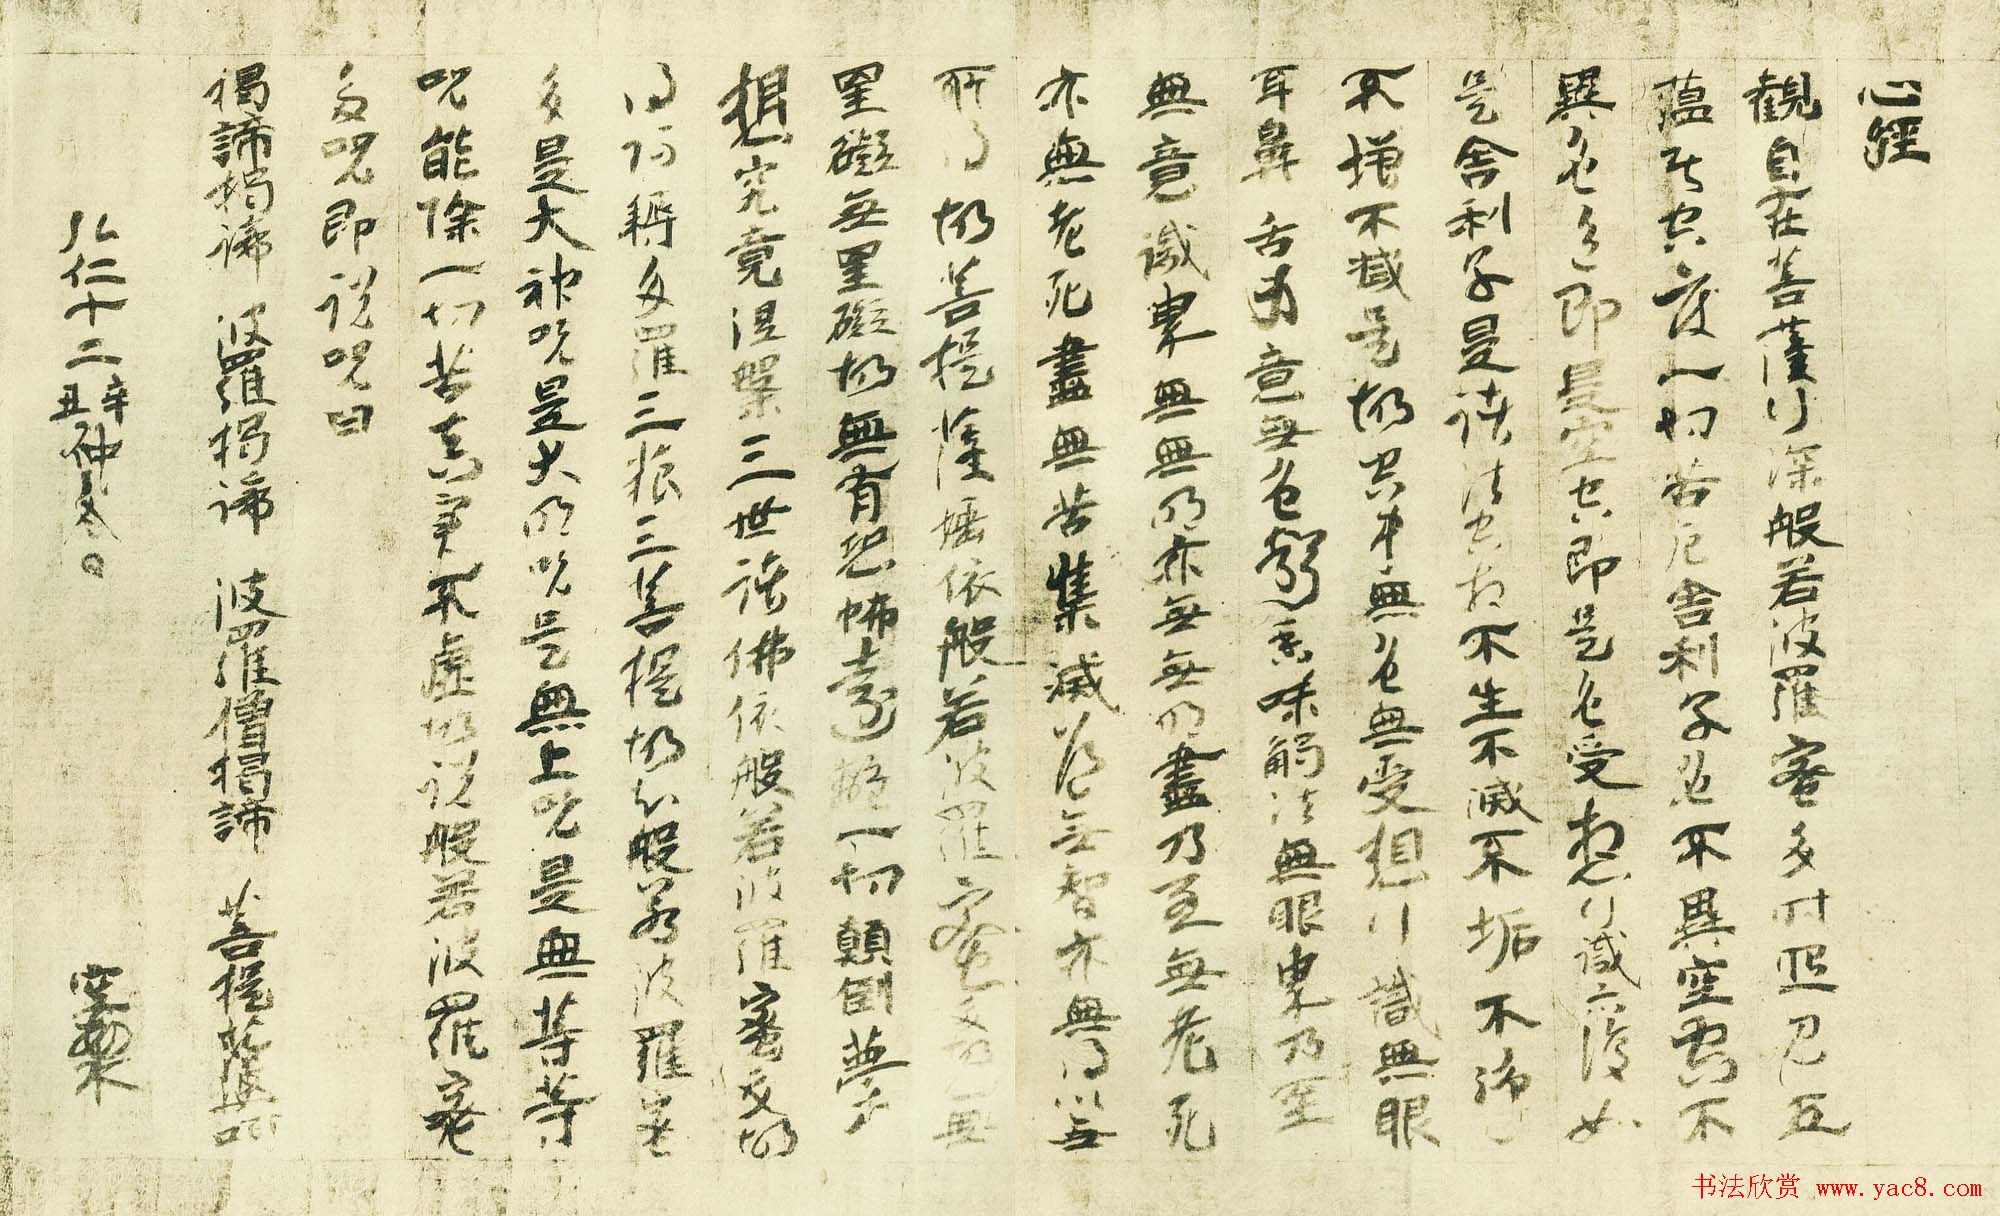 心經
觀自在菩薩行深般若波羅蜜多時照見五
蘊皆空度一切苦厄舍利子色不異空空不
異色色即是空空即是色受想行識亦復如
是舍利子是諸法空相不生不滅不垢不淨
不增不減是故空中無色無受想行識無眼
耳鼻舌身意無色聲香味觸法無眼界乃至
無意識界無無明亦無無明盡乃至無老死
亦無老死盡無苦集滅道無智亦無得以無
所得故菩提薩埵依般若波羅蜜多故無
罣礙無罣礙故無有恐怖遠離一切顛倒夢
想究竟涅槃三世諸佛依般若波羅蜜多故
得阿耨多羅三藐三菩提故知般若波羅蜜
多是大神呪是大明呪是無上呪是無等等
呪能除一切苦真實不虛故說般若波羅蜜
多呪即說呪曰
揭諦揭諦 波羅揭諦 波羅僧揭諦 菩提薩婆訶
弘仁十二辛丑仲冬。 空海
书法欣赏 www.yac8.com